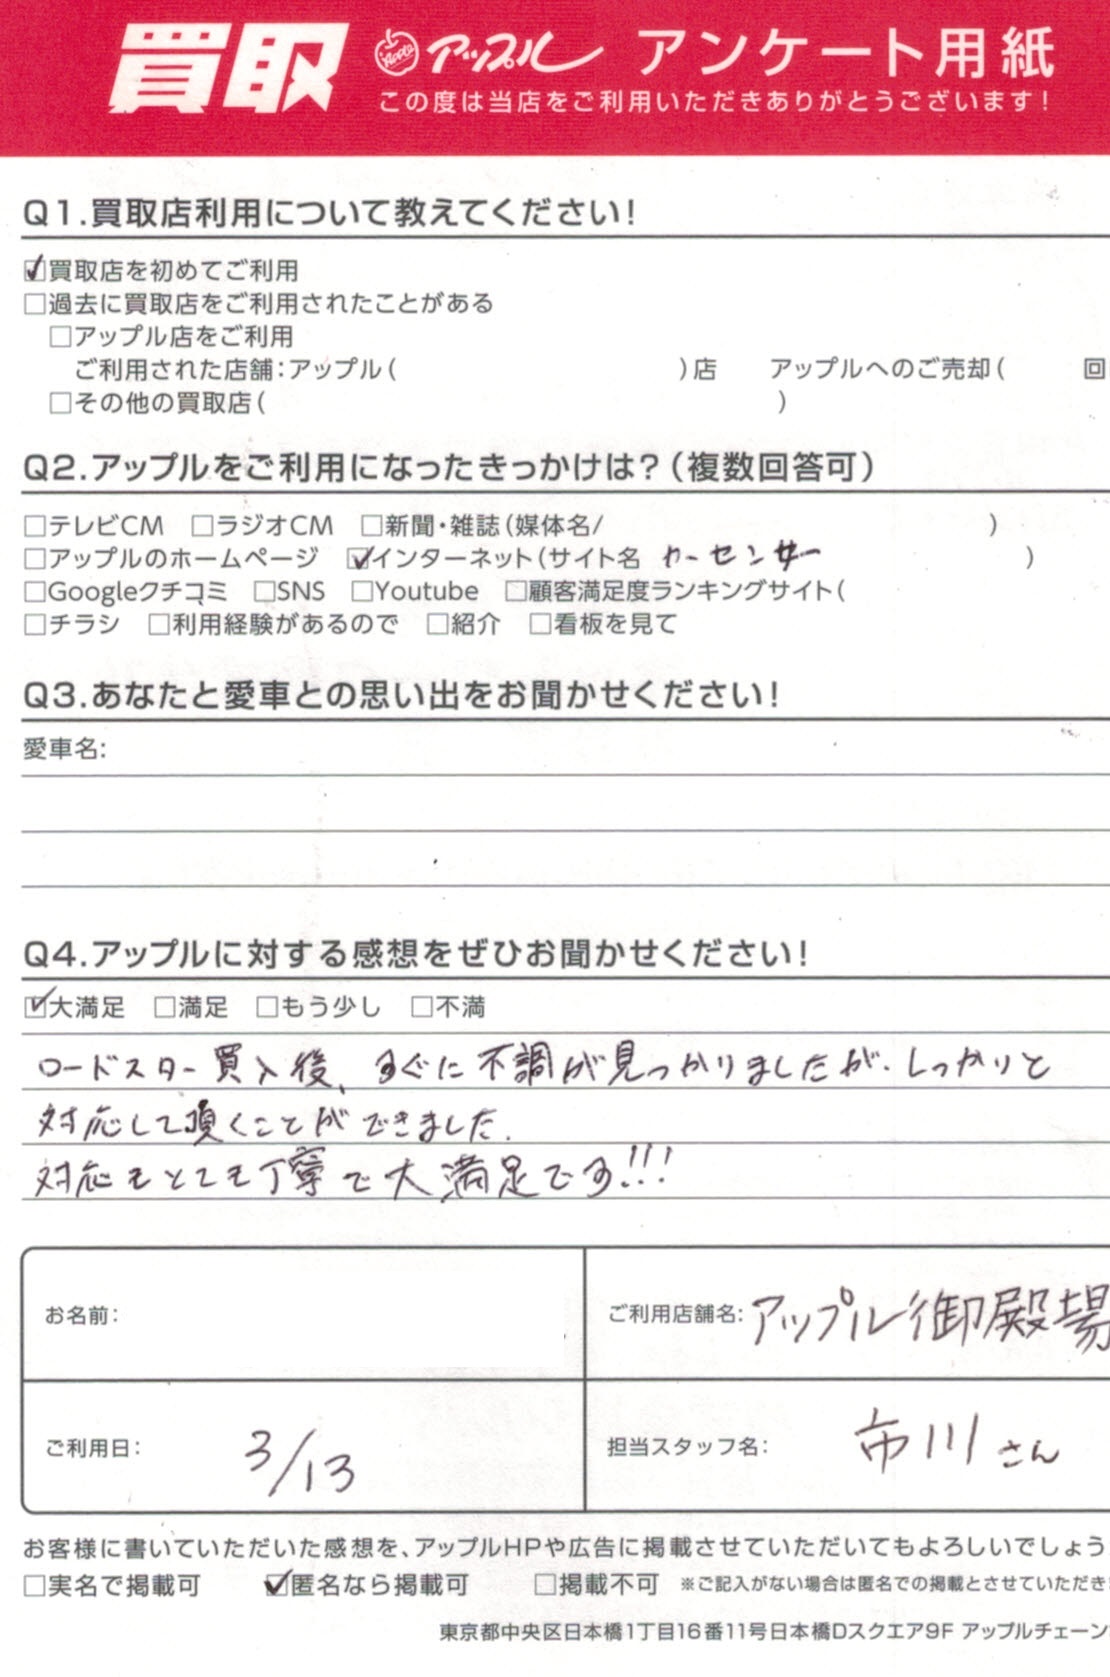 買取 Apple アップル アンケート用紙
この度は当店をご利用いただきありがとうございます!
Q1.買取店利用について教えてください!
☑買取店を初めてご利用
□過去に買取店をご利用されたことがある
□アップル店をご利用
ご利用された店舗:アップル( )店 アップルへのご売却( 回
□その他の買取店( )
Q2.アップルをご利用になったきっかけは?(複数回答可)
□テレビCM □ラジオCM □新聞・雑誌(媒体名/ )
□アップルのホームページ ☑インターネット(サイト名 カーセンサー )
□Googleクチコミ □SNS □Youtube □顧客満足度ランキングサイト(
□チラシ □利用経験があるので □紹介 □看板を見て
Q3.あなたと愛車との思い出をお聞かせください!
愛車名:
Q4.アップルに対する感想をぜひお聞かせください!
☑大満足 □満足 □もう少し □不満
ロードスター買入後、すぐに不調が見つかりましたが、しっかりと
対応して頂くことができました.
対応もとても丁寧で大満足です!!!
お名前:
ご利用店舗名:アップル御殿場
ご利用日: 3/13
担当スタッフ名: 市川さん
お客様に書いていただいた感想を、アップルHPや広告に掲載させていただいてもよろしいでしょう
□実名で掲載可 ☑匿名なら掲載可 □掲載不可 ※ご記入がない場合は匿名での掲載とさせていただき
東京都中央区日本橋1丁目16番11号日本橋Dスクエア9F アップルチェーン